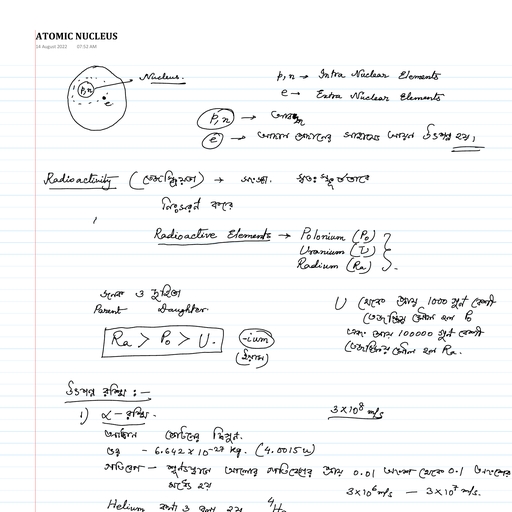 ATOMIC NUCLEUS
14 August 2022 07:52 AM
Nucleus.
p,n
e
p, n → Intra Nuclear Elements
e → Extra Nuclear Elements
p, n →
e →
Radioactivity (তেজস্ক্রিয়তা) → সংজ্ঞা. স্বতঃস্ফূর্তভাবে
নিঃসরণ করে
Radioactive Elements → Polonium (Po)
Uranium (U)
Radium (Ra)
জনক ও দুহিতা
Parent Daughter
Ra > Po > U.
-ium
U থেকে প্রায় 1000 গুন বেশী
তেজস্ক্রিয় মৌল হল Po
এবং প্রায় 100000 গুন বেশী
তেজস্ক্রিয় মৌল হল Ra.
রশ্মি :—
1) α – রশ্মি.
3×10⁸ m/s
আধান প্রোটনের দ্বিগুন.
ভর – 6.642 × 10⁻²⁷ kg. (4.0015u)
গতিবেগ – শূন্যস্থানে আলোর গতিবেগের প্রায় 0.01 অংশ থেকে 0.1 অংশের
মধ্যে হয়
3×10⁶ m/s — 3×10⁷ m/s.
Helium ⁴He